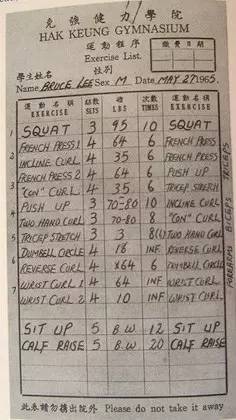 克強健力學院
HAK KEUNG GYMNASIUM
運動程序
Exercise List.
繳費日期
學生姓名 性別
Name BRUCE LEE Sex M Date MAY 27 1965.
運動名稱 組數 磅 次數 運動名稱
EXERCISE SETS LBS TIMES EXERCISE
1 SQUAT 3 95 10 SQUAT
2 FRENCH PRESS 1 4 64 6 FRENCH PRESS
INCLINE CURL 4 35 6 FRENCH PRESS
FRENCH PRESS 2 4 64 6 PUSH UP
3 "CON" CURL 4 35 6 TRICEP STRETCH
PUSH UP 3 70-80 10 INCLINE CURL
4 TWO HAND CURL 3 70-80 8 "CON" CURL
5 TRICEP STRETCH 3 3 TWO HAND CURL
DUMBELL CIRCLE 4 18 INF REVERSE CURL
6 REVERSE CURL 4 X64 6 DUMBELL CIRCLE
WRIST CURL 1 4 64 INF WRIST CURL
7 WRIST CURL 2 4 10 INF WRIST CURL
SIT UP 5 B.W 12 SIT UP
CALF RAISE 5 B.W 20 CALF RAISE
TRICEPS
BICEPS
FOREARMS
此券請勿携出院外 Please do not take it away